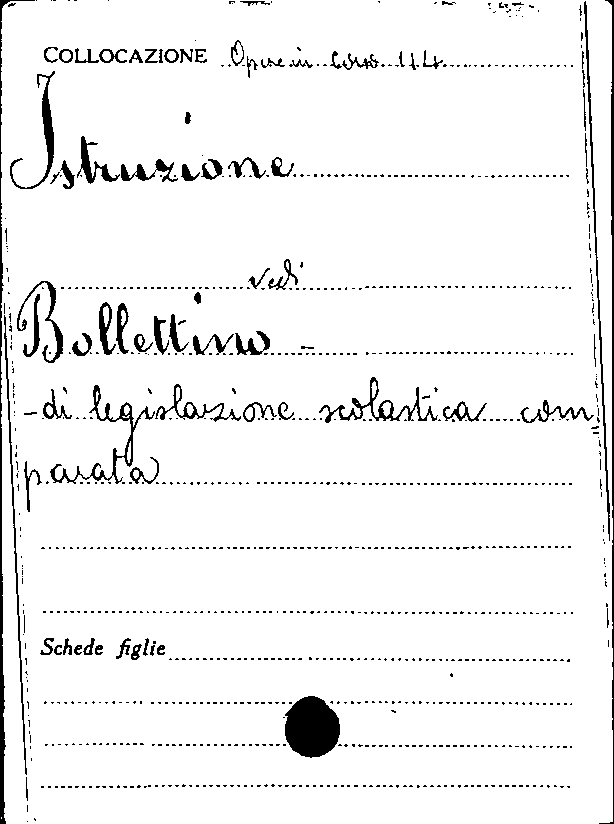 COLLOCAZIONE Opere in corso 114
Istruzione
vedi
Bollettino -
- di legislazione scolastica com
parata
Schede figlie